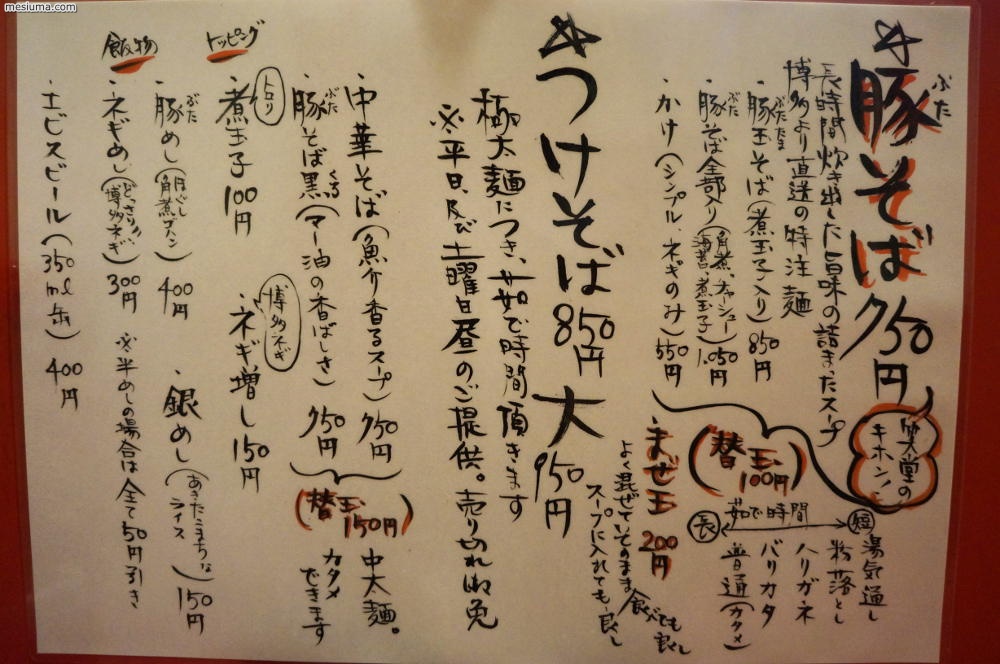 mesiuma.com
豚そば 750円
ぶた
笑堂のキホン!
長時間炊き出した旨味の詰まったスープ
博多より直送の特注麺
・豚玉そば(煮玉子入り) 850円
ぶたたま
・豚そば全部入り(角煮、チャーシュー 海苔、煮玉子) 1,050円
ぶた
・かけ(シンプル、ネギのみ) 550円
替玉 100円
茹で時間
短
長
湯気通し
粉落とし
ハリガネ
バリカタ
普通(カタメ)
・まぜ玉 200円
よく混ぜてそのまま食べても良し
スープに入れても良し
つけそば 850円 大 950円
極太麺につき、茹で時間頂きます
※平日、及び土曜日昼のご提供。売り切れ御免
・中華そば(魚介香るスープ) 750円
・豚そば黒(マー油の香ばしさ) 750円
ぶた
くろ
替玉 150円
中太麺。
カタメできます
トッピング
・煮玉子 100円
トロリ
ネギ増し 150円
博多ネギ
飯物
・豚めし(ほぐし角煮ゴハン) 400円
ぶた
銀めし(あきたこまちなライス) 150円
・ネギめし(どっさり!!博多ネギ) 300円
※半めしの場合は全て50円引き
・ヱビスビール(350ml缶) 400円